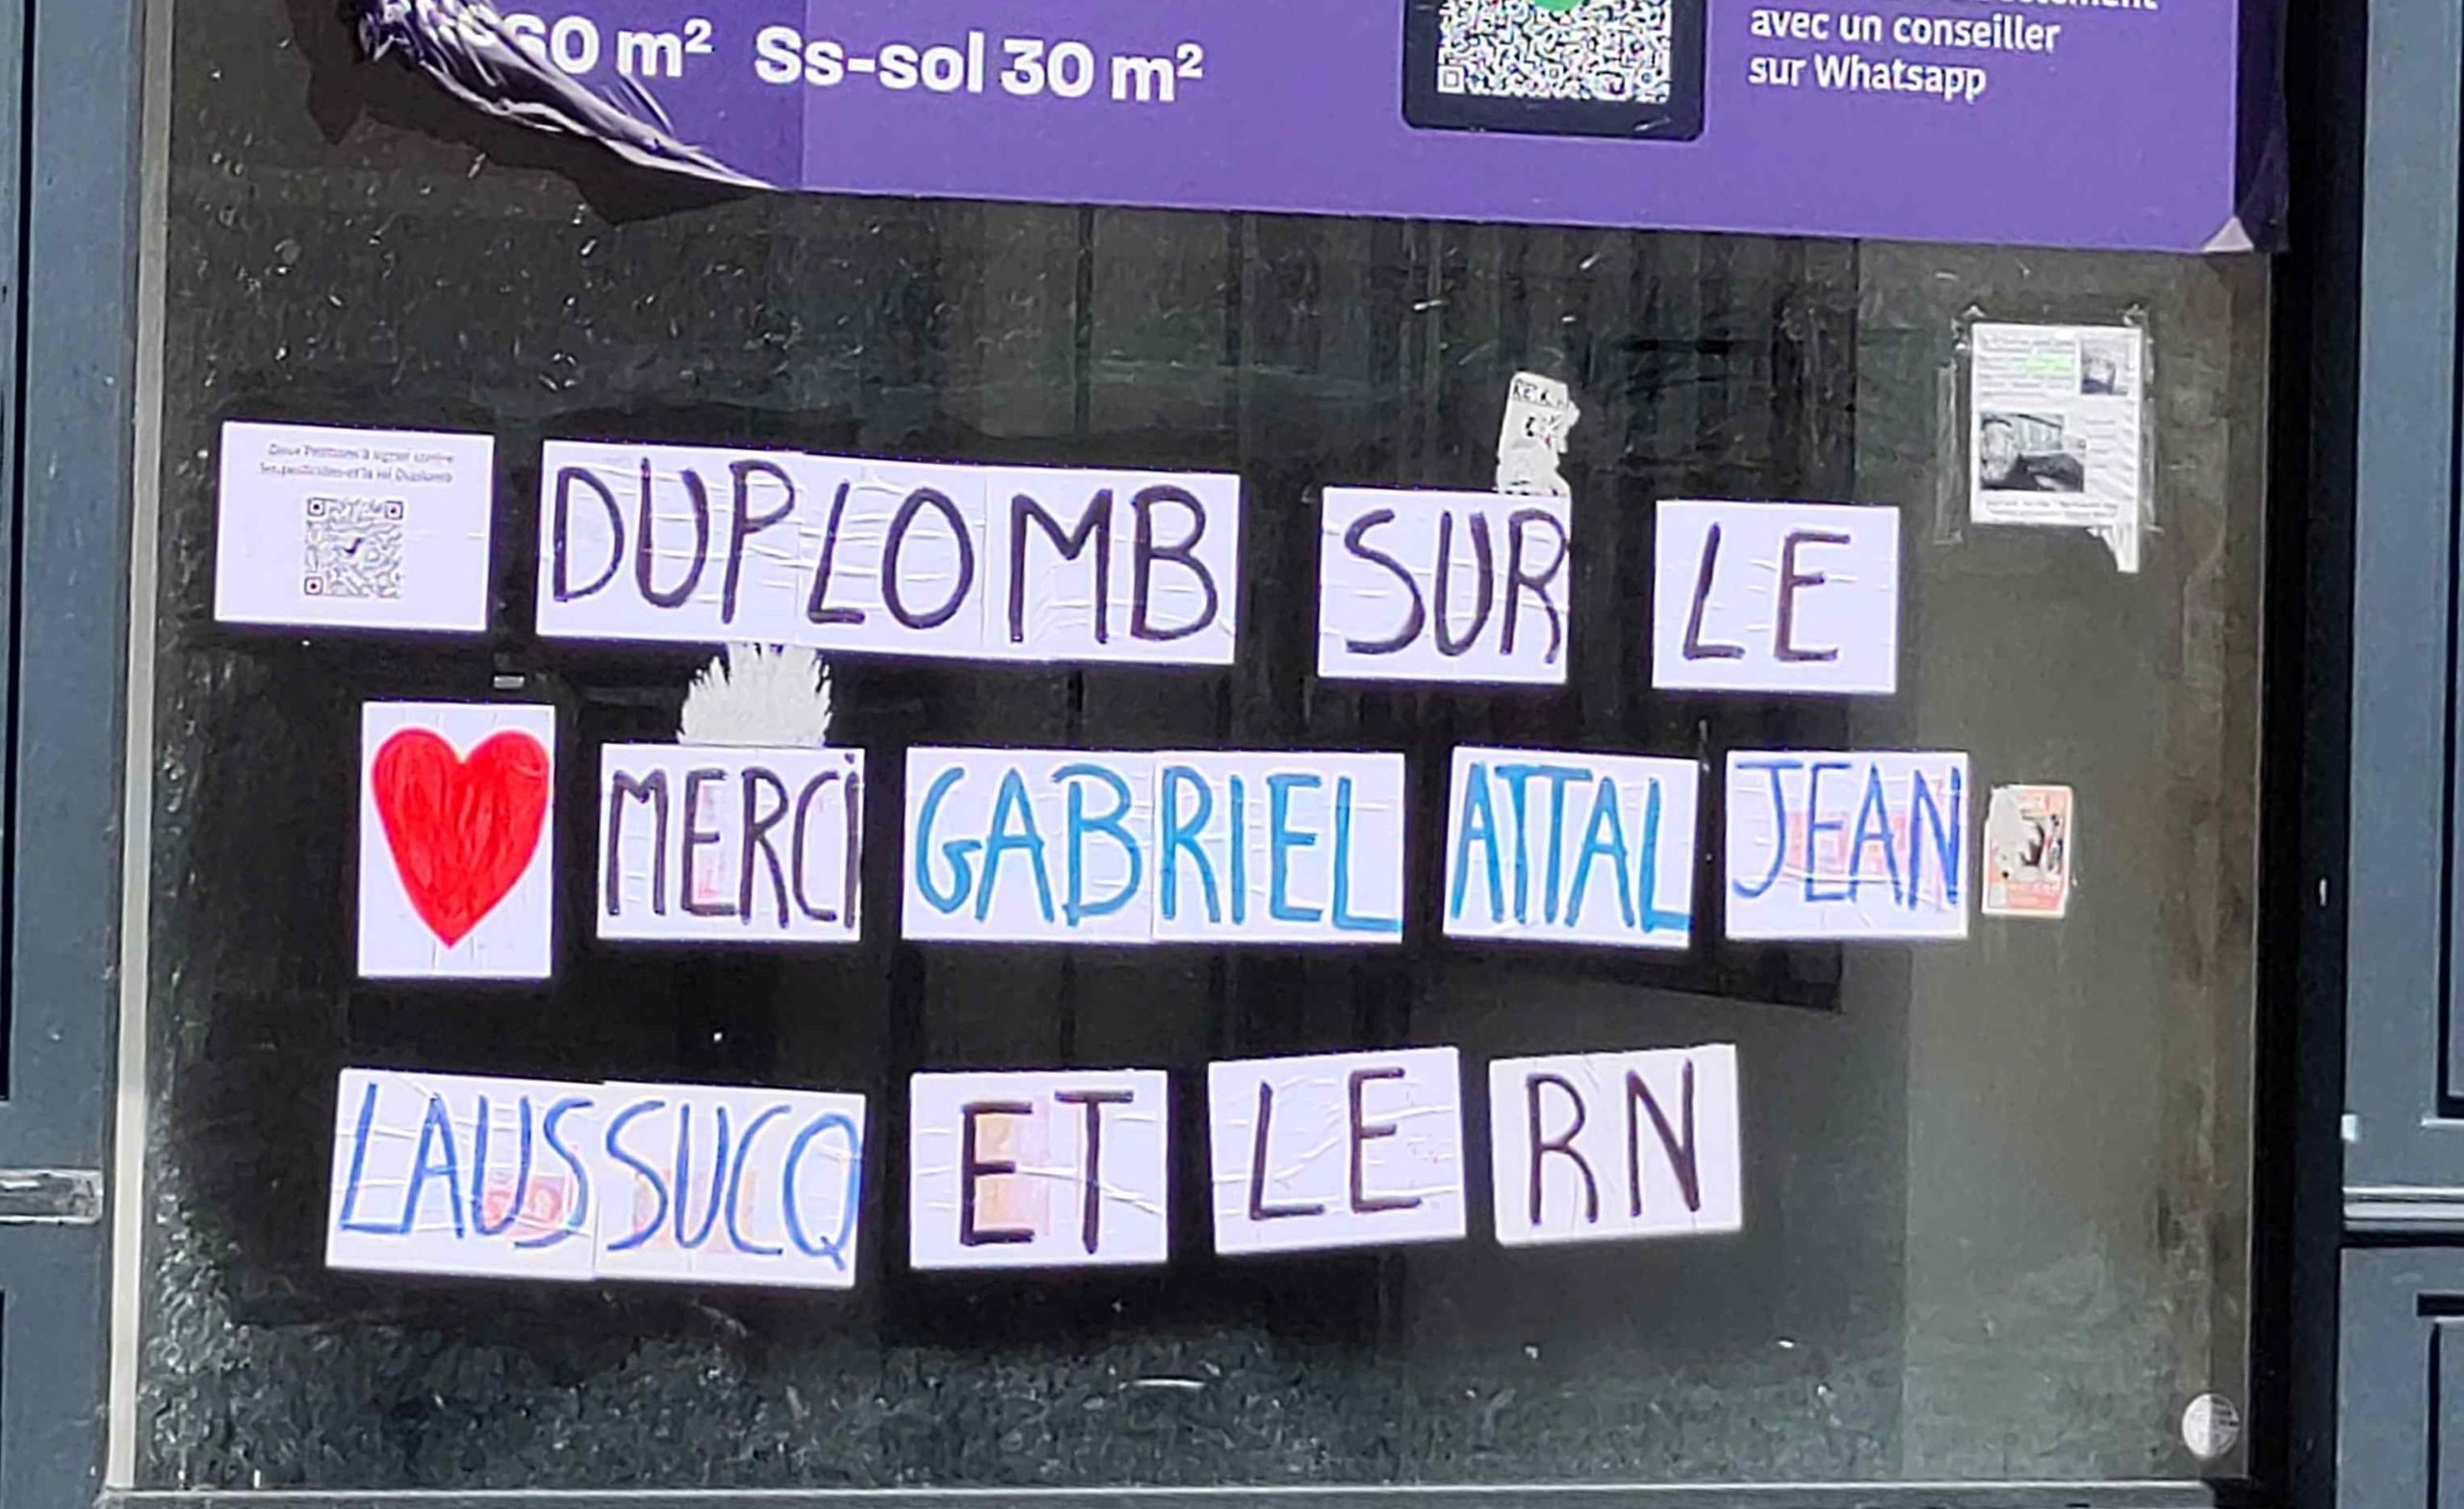 60 m² Ss-sol 30 m²
avec un conseiller
sur Whatsapp
Deux Pétitions à signer contre
les pesticides et la loi Duplomb
DUPLOMB SUR LE
MERCI GABRIEL ATTAL JEAN
LAUSSUCQ ET LE RN